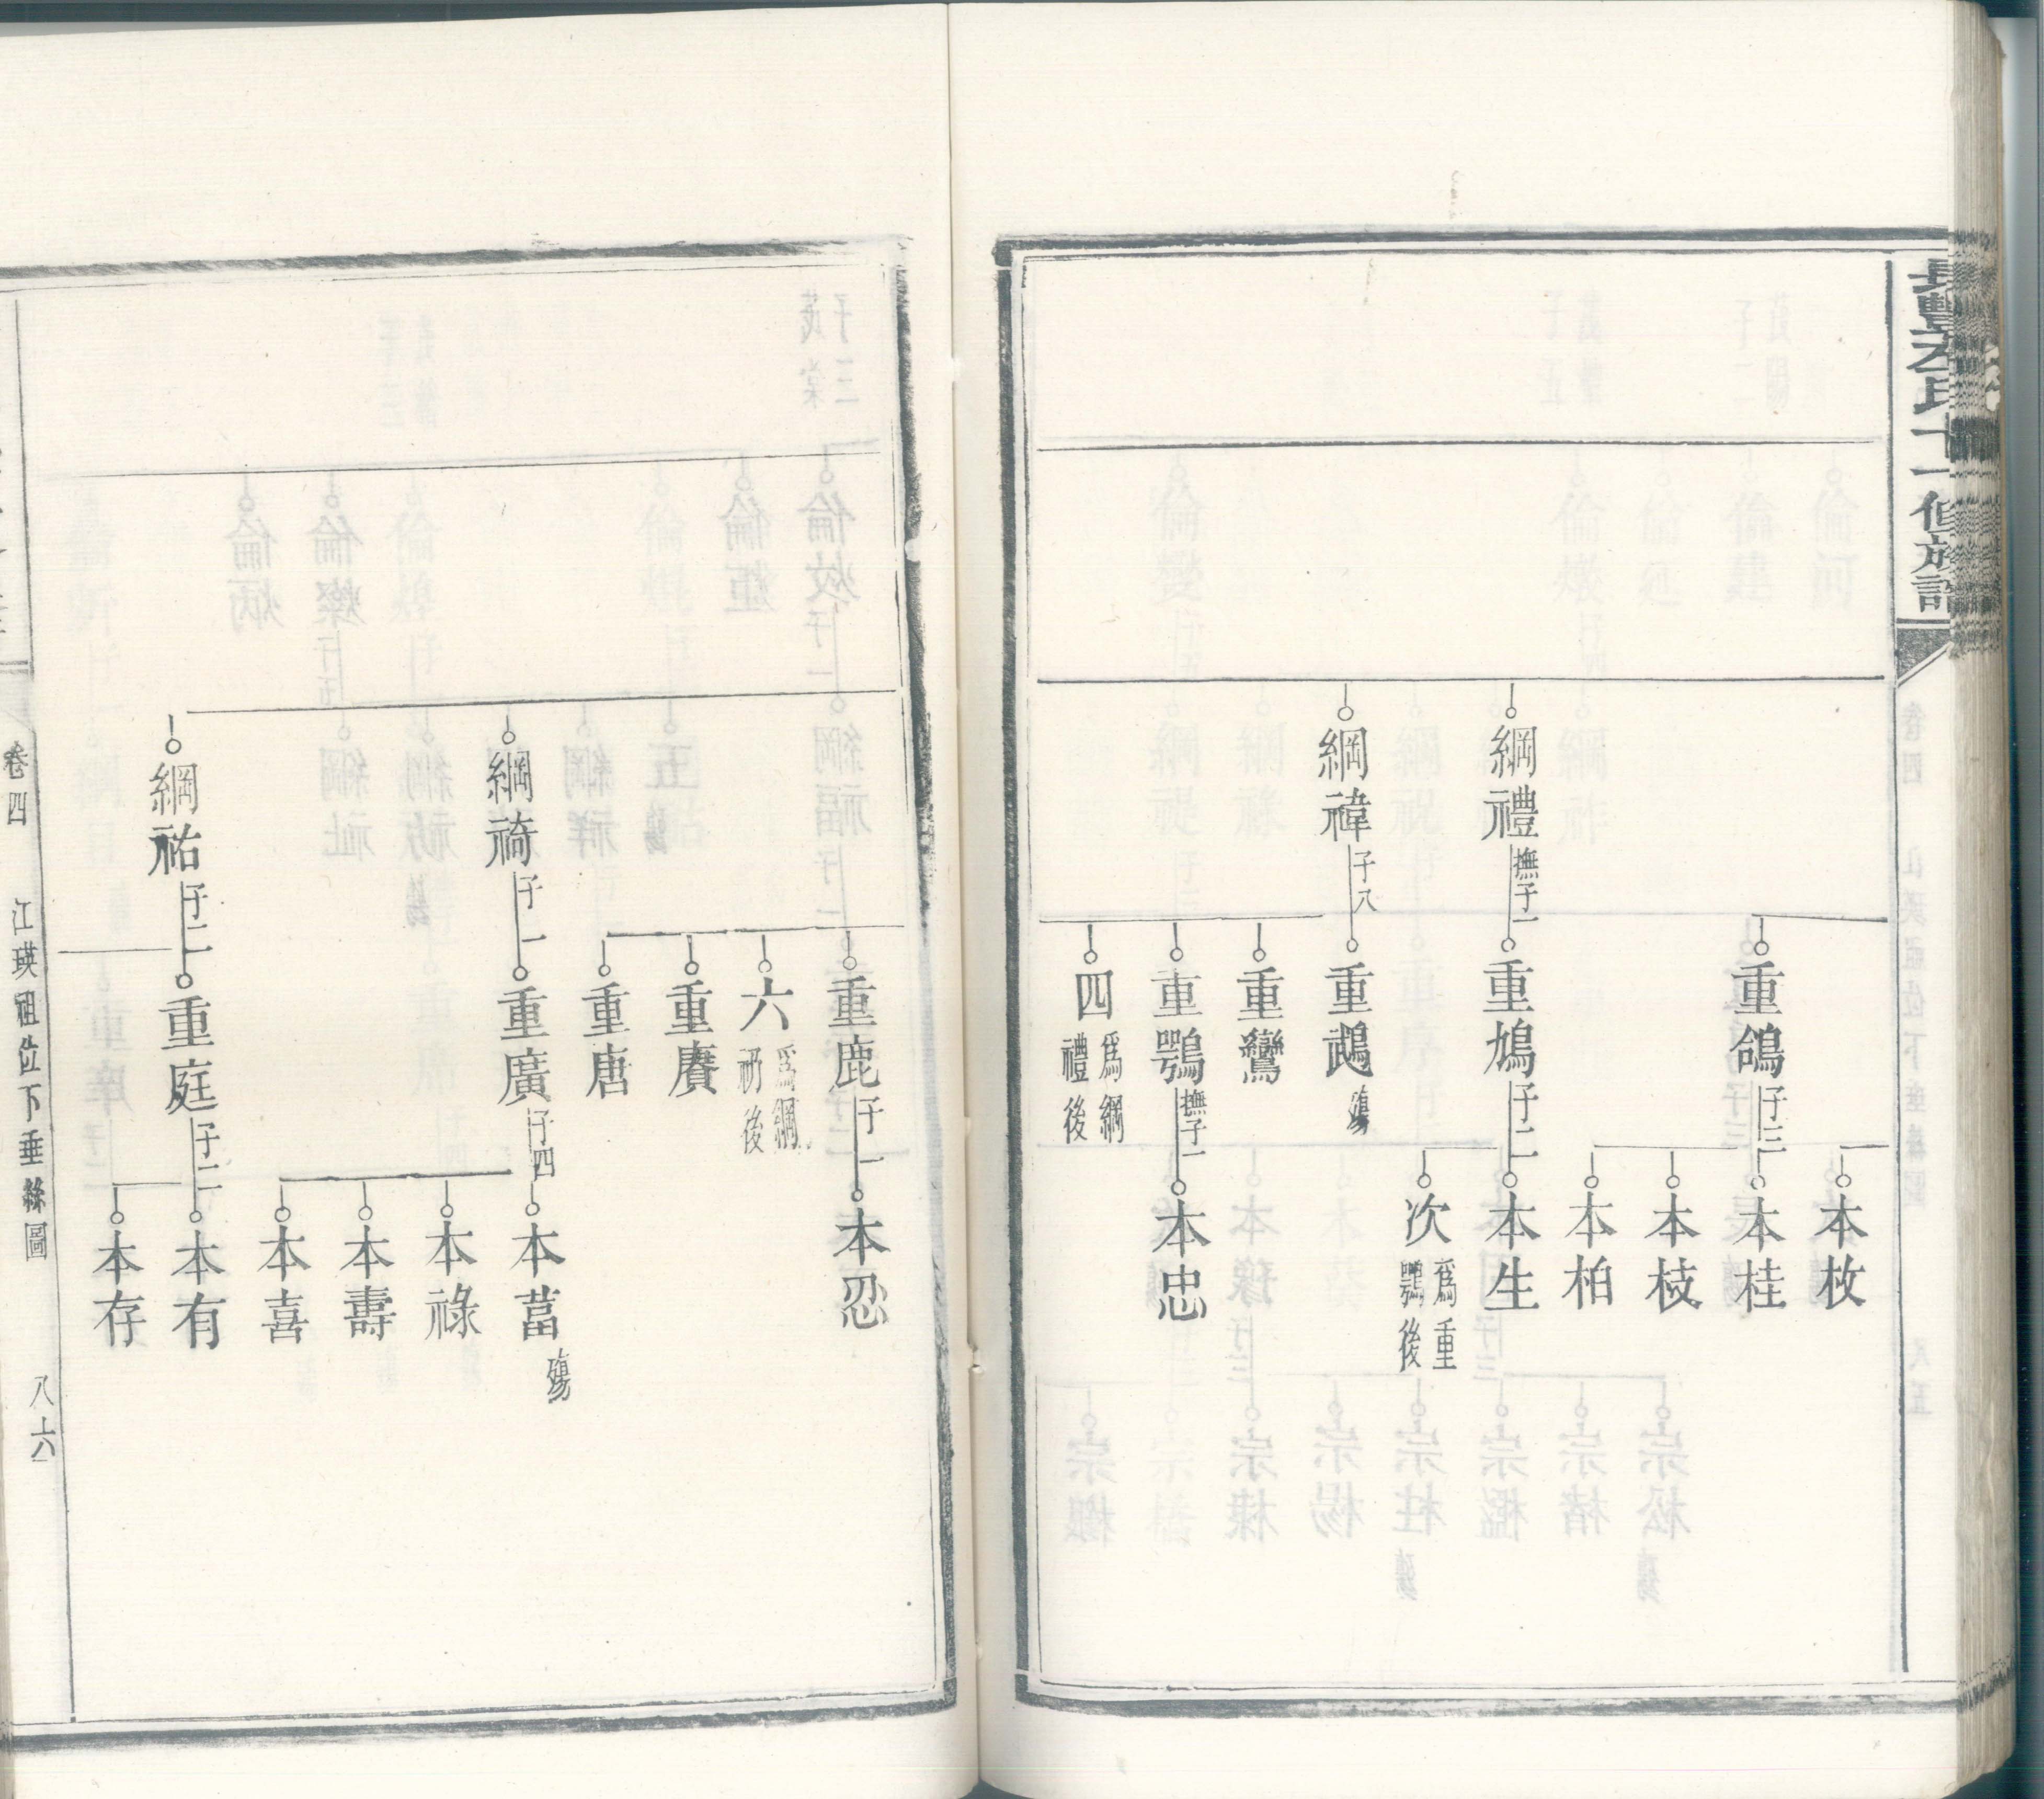 長豐左氏十一修族譜
本枚
重鴿
子三
本桂
本枝
本柏
綱禮
撫子一
重鳩
子二
本生
次
爲重
鶚後
綱禕
子八
重鵡
殤
重鸞
重鶚
撫子一
本忠
四
爲綱
禮後
重鹿
子一
本忍
六
爲綱
礽後
重賡
重唐
綱䄎
子一
重廣
子四
本葍
殤
本祿
本壽
本喜
綱祐
子二
重庭
子二
本有
本存
卷四
江瑛祖位下垂絲圖
八十六